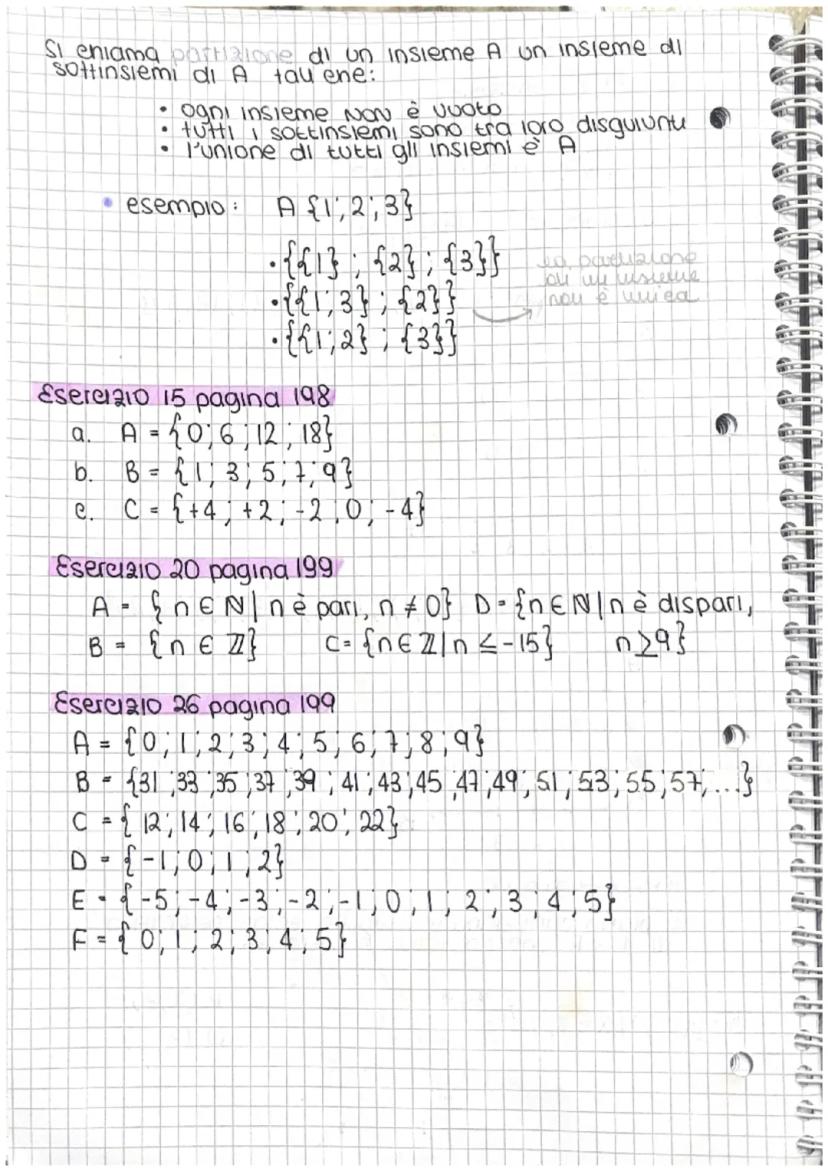 Si chiama partizione di un insieme A un insieme di
sottinsiemi di A tali che:
• ogni insieme NON è vuoto
• tutti i sottinsiemi sono tra loro disguiunti
• l'unione di tutti gli insiemi è A
• esempio: A {1;2;3}
•{{1} ; {2} ; {3}}
la partizione
di un insieme
non è unica
•{{1;3} ; {2}}
•{{1;2} ; {3}}
Esercizio 15 pagina 198
a. A = {0;6;12;18}
b. B = {1;3;5;7;9}
c. C = {+4;+2;-2;0;-4}
Esercizio 20 pagina 199
A = {n∈ℕ| n è pari, n ≠ 0} D = {n∈ℕ|n è dispari,
B = {n ∈ ℤ} C = {n∈ℤ|n ≤ -15} n≥9}
Esercizio 26 pagina 199
A = {0;1;2;3;4;5;6;7;8;9}
B = {31;33;35;37;39;41;43;45;47;49;51;53;55;57;...}
C = {12;14;16;18;20;22}
D = {-1;0;1;2}
E = {-5;-4;-3;-2;-1;0;1;2;3;4;5}
F = {0;1;2;3;4;5}